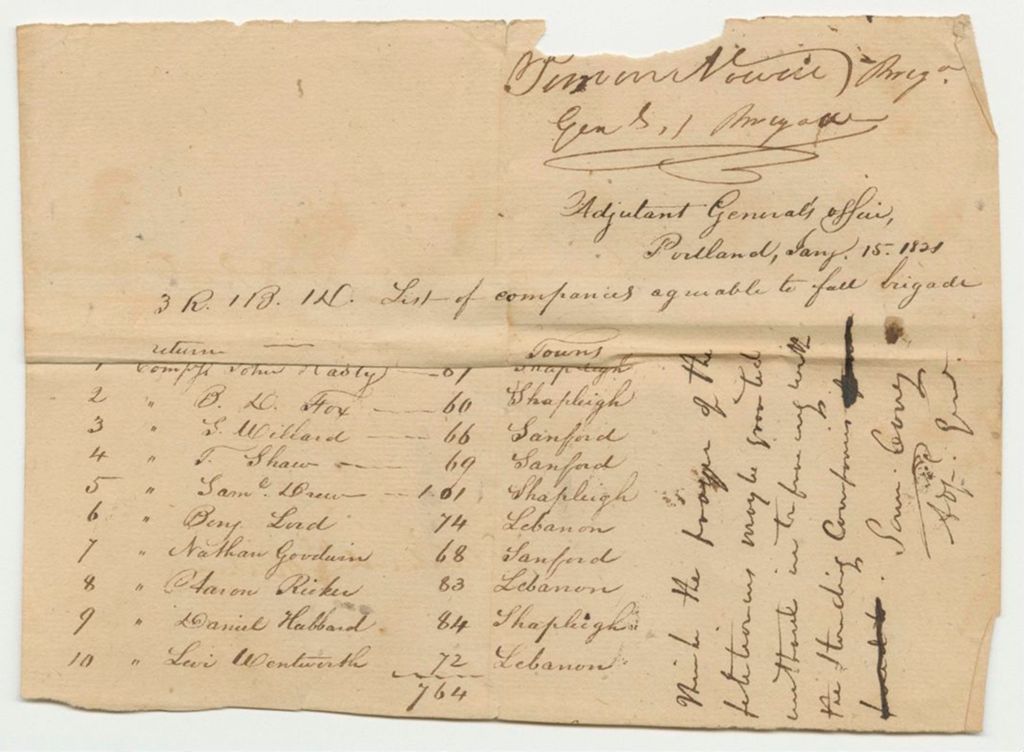 Simon Nowell Brigr
Genl, 1 Brigade
Adjutant General's office,
Portland, Jany. 15. 1821
3 R. 1 B. 1 D. List of companies agreeable to fall brigade
return Towns
1 Compy John Hasty 87 Shapleigh
2 " B. D. Fox 60 Shapleigh
3 " S. Willard 66 Sanford
4 " T. Shaw 69 Sanford
5 " Saml. Drew 101 Shapleigh
6 " Benj Lord 74 Lebanon
7 " Nathan Goodwin 68 Sanford
8 " Aaron Ricker 83 Lebanon
9 " Daniel Hubbard 84 Shapleigh
10 " Levi Wentworth 72 Lebanon
764
think the prayer of the
petitioners may be granted
without interfering with
the standing Companies
Sam Cony
Adj. Genl